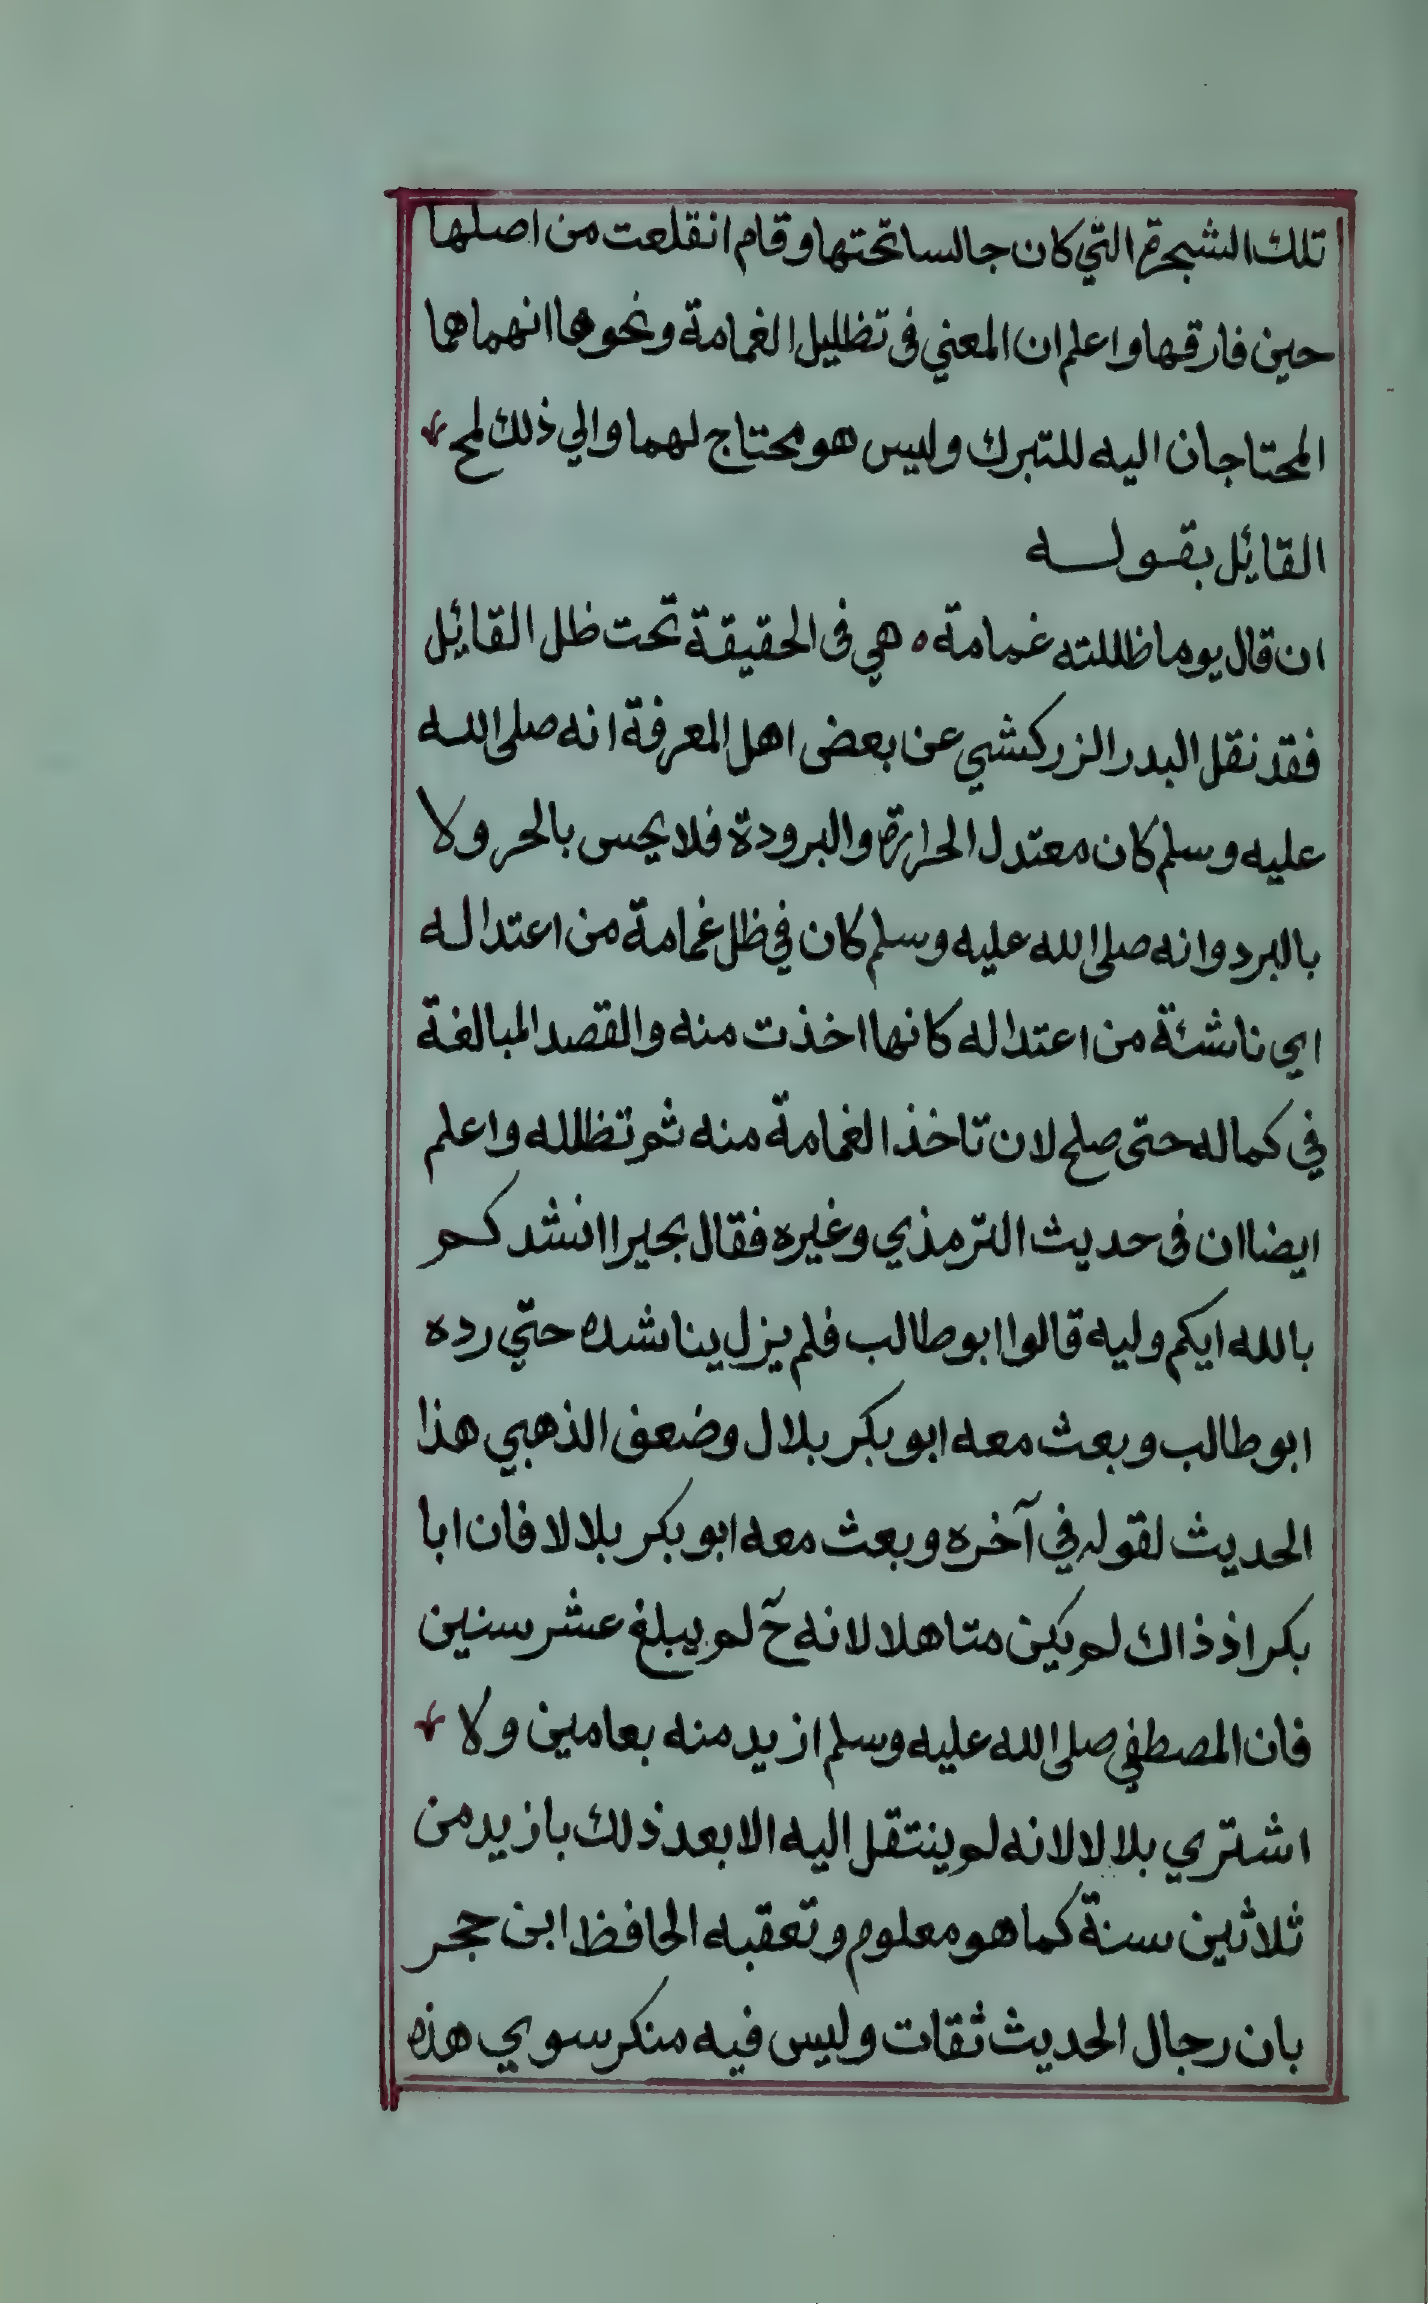 تلك الشجرة التي كان جالسا تحتها وقام انقلعت من اصلها
حين فارقها واعلم ان المعني في تظليل الغمامة ونحوها انهما هما
المحتاجان اليه للتبرك وليس هو محتاج لهما والي ذلك لمح
القائل بقوله
ان قال يوما ظللته غمامة ه هي في الحقيقة تحت ظل القائل
فقد نقل البدر الزركشي عن بعض اهل المعرفة انه صلى الله
عليه وسلم كان معتدل الحرارة والبرودة فلا يحس بالحر ولا
بالبرد وانه صلى الله عليه وسلم كان في ظل غمامة من اعتداله
اي ناشئة من اعتداله كانها اخذت منه والقصد المبالغة
في كماله حتى صلح لان تاخذ الغمامة منه ثم تظلله واعلم
ايضا ان في حديث الترمذي وغيره فقال بحيرا انشدكم
بالله ايكم وليه قالوا ابو طالب فلم يزل يناشده حتي رده
ابو طالب وبعث معه ابو بكر بلال وضعف الذهبي هذا
الحديث لقوله في آخره وبعث معه ابو بكر بلالا فان ابا
بكر اذ ذاك لم يكن متاهلا لانه ح لم يبلغ عشر سنين
فان المصطفي صلى الله عليه وسلم ازيد منه بعامين ولا
اشتري بلالا لانه لم ينتقل اليه الا بعد ذلك بازيد من
ثلاثين سنة كما هو معلوم وتعقبه الحافظ ابن حجر
بان رجال الحديث ثقات وليس فيه منكر سوي هذه